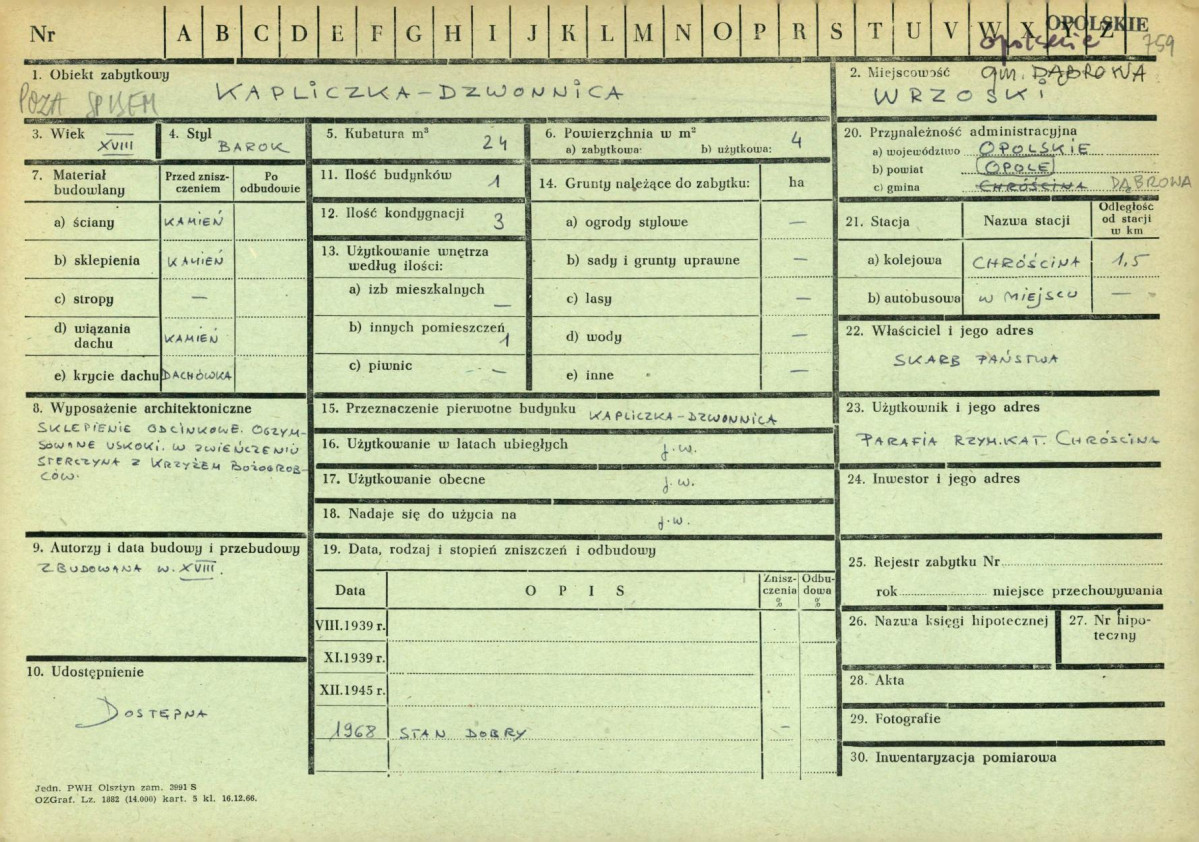 Nr A B C D E F G H I J K L M N O P R S T U V W X Y Z
OPOLSKIE
opolskie 759
1. Obiekt zabytkowy
POZA SPISEM
KAPLICZKA-DZWONNICA
2. Miejscowość gm. DĄBROWA
WRZOSKI
3. Wiek XVIII
4. Styl BAROK
5. Kubatura m³ 24
6. Powierzchnia w m²
a) zabytkowa: b) użytkowa: 4
7. Materiał budowlany
Przed zniszczeniem
Po odbudowie
a) ściany KAMIEŃ
b) sklepienia KAMIEŃ
c) stropy —
d) wiązania dachu KAMIEŃ
e) krycie dachu DACHÓWKA
11. Ilość budynków 1
12. Ilość kondygnacji 3
13. Użytkowanie wnętrza
według ilości:
a) izb mieszkalnych —
b) innych pomieszczeń 1
c) piwnic —
14. Grunty należące do zabytku: ha
a) ogrody stylowe —
b) sady i grunty uprawne —
c) lasy —
d) wody —
e) inne —
20. Przynależność administracyjna
a) województwo OPOLSKIE
b) powiat OPOLE
c) gmina CHRÓŚCINA DĄBROWA
21. Stacja Nazwa stacji Odległość od stacji w km
a) kolejowa CHRÓŚCINA 1,5
b) autobusowa W MIEJSCU —
22. Właściciel i jego adres
SKARB PAŃSTWA
8. Wyposażenie architektoniczne
SKLEPIENIE ODCINKOWE. OGZYM-
SOWANE USKOKI. W ZWIEŃCZENIU
STERCZYNA Z KRZYŻEM BOŻOGROB-
CÓW.
15. Przeznaczenie pierwotne budynku KAPLICZKA-DZWONNICA
16. Użytkowanie w latach ubiegłych j.w.
17. Użytkowanie obecne j.w.
18. Nadaje się do użycia na j.w.
23. Użytkownik i jego adres
PARAFIA RZYM.KAT. CHRÓŚCINA
24. Inwestor i jego adres
9. Autorzy i data budowy i przebudowy
ZBUDOWANA W. XVIII.
10. Udostępnienie
DOSTĘPNA
19. Data, rodzaj i stopień zniszczeń i odbudowy
Data OPIS Zniszczenia % Odbudowa %
VIII.1939 r.
XI.1939 r.
XII.1945 r.
1968 STAN DOBRY —
25. Rejestr zabytku Nr
rok miejsce przechowywania
26. Nazwa księgi hipotecznej
27. Nr hipoteczny
28. Akta
29. Fotografie
30. Inwentaryzacja pomiarowa
Jedn. PWH Olsztyn zam. 2991 S
OZGraf. Lz. 1882 (14.000) kart. 5 kl. 16.12.66.